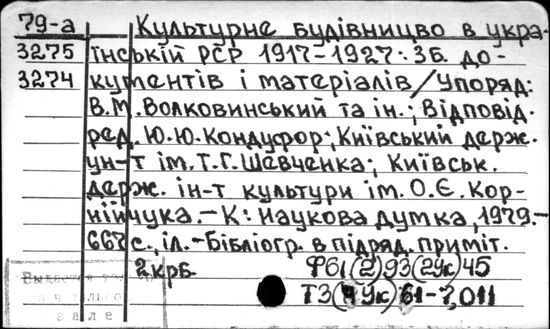 79-а Культурне будівництво в укра-
3275 їнській РСР 1917-1927: Зб. до-
3274 кументів і матеріалів / Упоряд:
В.М. Волковинський та ін.; Відповід.
ред. Ю.Ю. Кондуфор; Київський держ.
ун-т ім. Т.Г. Шевченка; Київськ.
держ. ін-т культури ім. О.Є. Кор-
нійчука. - К: Наукова думка, 1979. -
667 с., іл. - Бібліогр. в підряд. приміт.
2 крб. Ф61(2)93(2Ук)45
Т3(4Ук)61-7,011